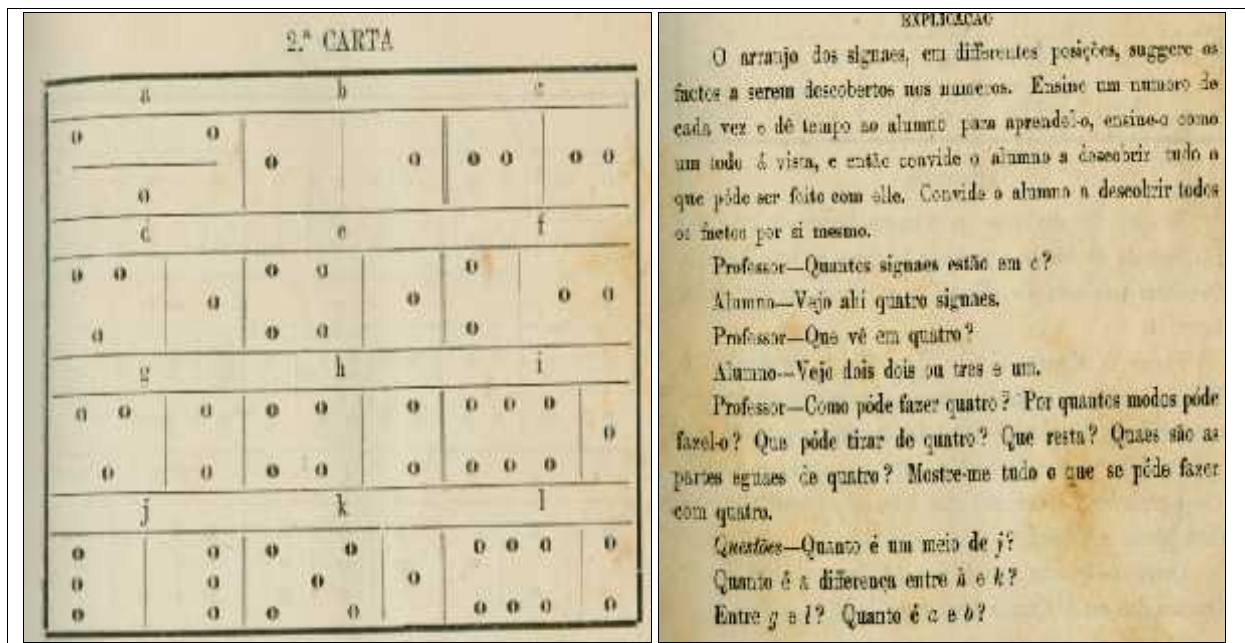 2.ª CARTA
a b c
d e f
g h i
j k l
EXPLICAÇÃO
O arranjo dos signaes, em differentes posições, suggere os
factos a serem descobertos nos numeros. Ensine um numero de
cada vez e dê tempo ao alumno para aprendel-o, ensine-o como
um todo á vista, e então convide o alumno a descobrir tudo o
que póde ser feito com elle. Convide o alumno a descobrir todos
os factos por si mesmo.
Professor—Quantos signaes estão em c?
Alumno—Vejo ahi quatro signaes.
Professor—Que vê em quatro?
Alumno—Vejo dois dois ou tres e um.
Professor—Como póde fazer quatro? Por quantos modos póde
fazel-o? Que póde tirar de quatro? Que resta? Quaes são as
partes eguaes de quatro? Mostre-me tudo o que se póde fazer
com quatro.
Questões—Quanto é um meio de j?
Quanto é a differença entre h e k?
Entre g e l? Quanto é a e b?